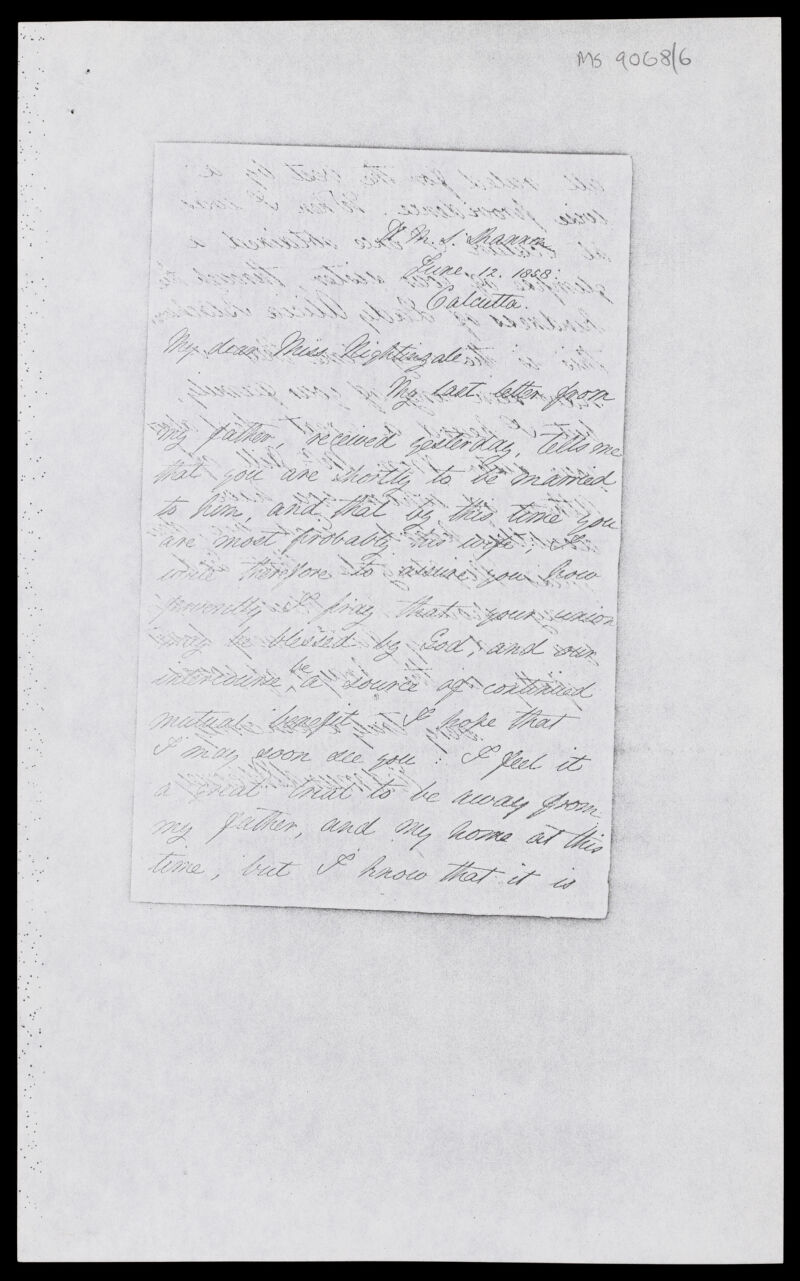 MS 9068/6
H. M. S. Shannon
June 12. 1858.
Calcutta.
My dear Miss Nightingale
My last letter from
my father, received yesterday, tells me
that you are shortly to be married
to him, and that by this time you
are most probably his wife; I
write therefore to assure you how
fervently I pray that your union
may be blessed by God, and our
intercourse, be a source of continued
mutual benefit. I hope that
I may soon see you: I feel it
a great trial to be away from
my father, and my home at this
time, but I know that it is